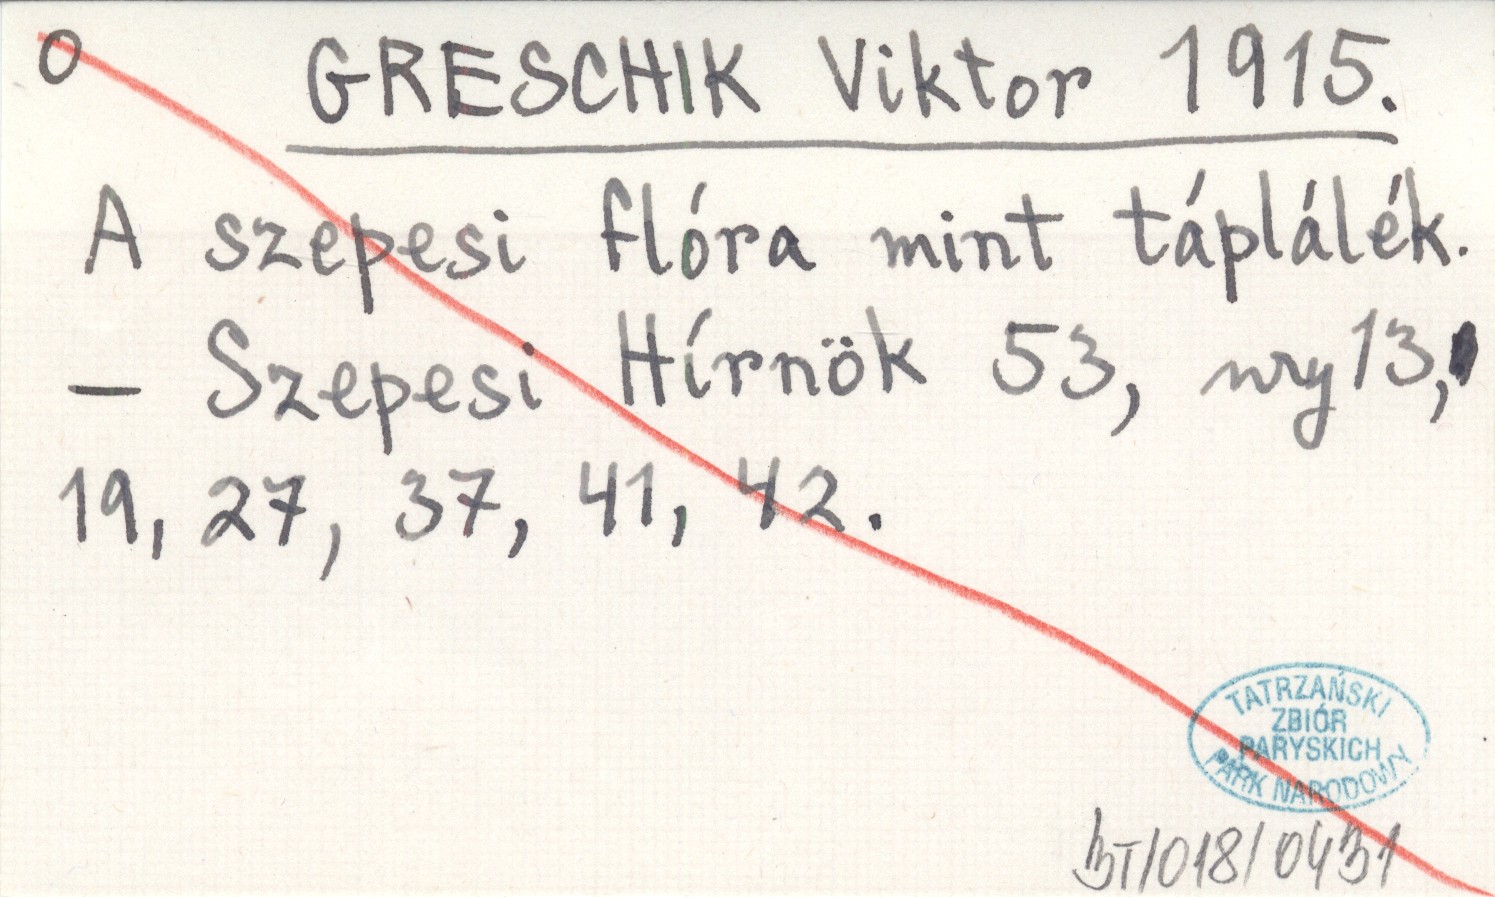 O GRESCHIK Viktor 1915.
A szepesi flóra mint táplálék.
– Szepesi Hírnök 53, nry 13,
19, 27, 37, 41, 42.
TATRZAŃSKI
ZBIÓR
PARYSKICH
PARK NARODOWY
BT/018/0431